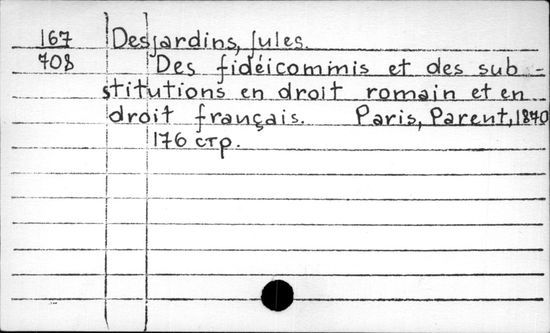 167 Desjardins, Jules.
708 Des fidéicommis et des sub-
stitutions en droit romain et en
droit français. Paris, Parent, 1870
176 стр.